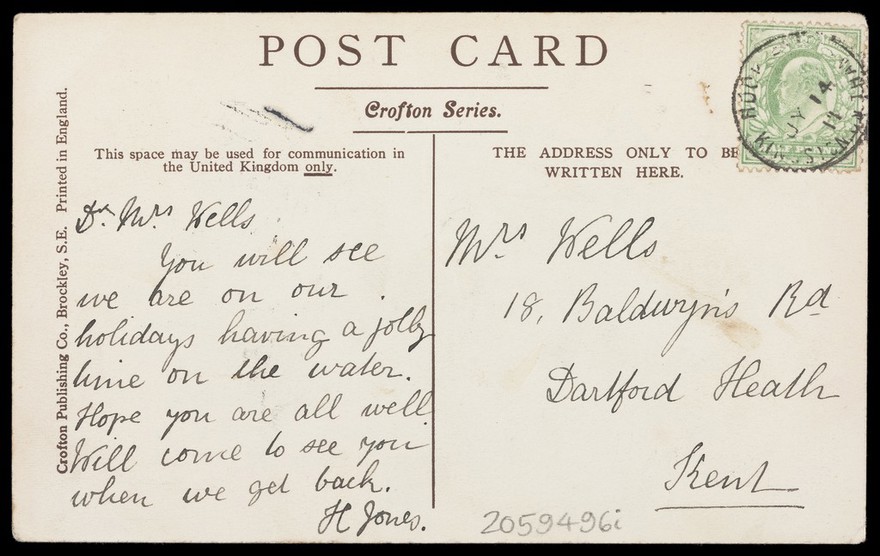 POST CARD
Crofton Series.
This space may be used for communication in
the United Kingdom only.
THE ADDRESS ONLY TO BE
WRITTEN HERE.
Crofton Publishing Co., Brockley, S.E. Printed in England.
Dr. Mrs Wells
You will see
we are on our
holidays having a jolly
time on the water.
Hope you are all well
Will come to see you
when we get back.
H Jones.
Mrs Wells
18, Baldwyn's Rd
Dartford Heath
Kent
JY 14
11
2059496i